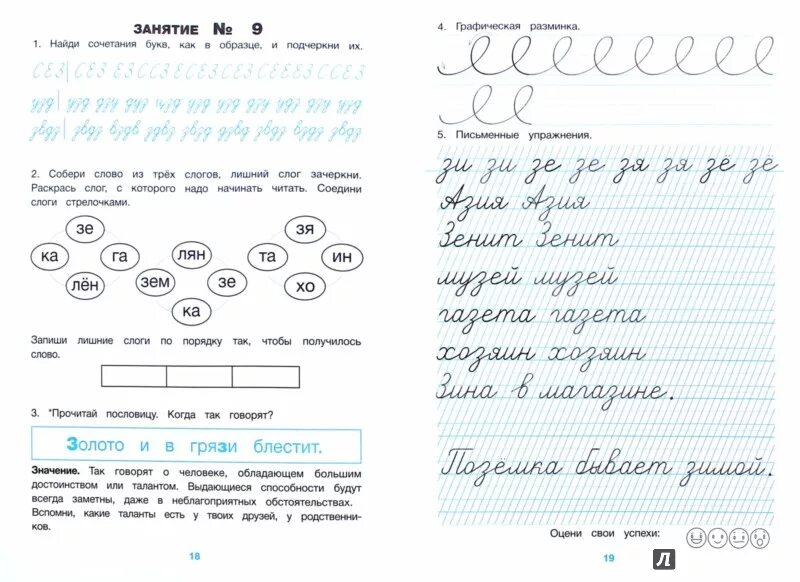 ЗАНЯТИЕ № 9
1. Найди сочетания букв, как в образце, и подчеркни их.
2. Собери слово из трёх слогов, лишний слог зачеркни.
Раскрась слог, с которого надо начинать читать. Соедини
слоги стрелочками.
зе
ка га
лён
лян
зем зе
ка
зя
та ин
хо
Запиши лишние слоги по порядку так, чтобы получилось
слово.
3. *Прочитай пословицу. Когда так говорят?
Золото и в грязи блестит.
Значение. Так говорят о человеке, обладающем большим
достоинством или талантом. Выдающиеся способности будут
всегда заметны, даже в неблагоприятных обстоятельствах.
Вспомни, какие таланты есть у твоих друзей, у родственни-
ков.
18
4. Графическая разминка.
5. Письменные упражнения.
зи зи зе зе зя зя зё зё
Азия Азия
Зенит Зенит
музей музей
газета газета
хозяин хозяин
Зина в магазине.
Позёмка бывает зимой.
Оцени свои успехи:
19
Л